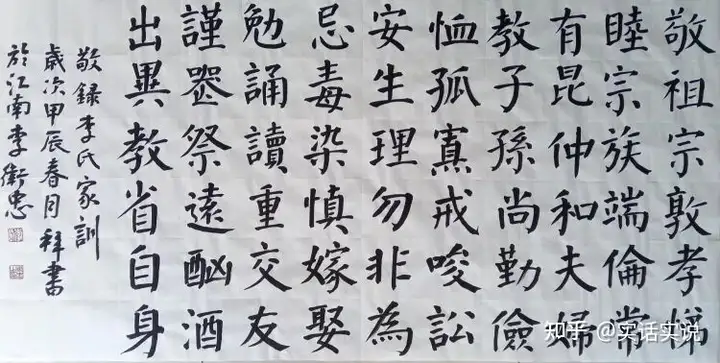 敬祖宗敦孝娣
睦宗族端倫常
有昆仲和夫婦
教子孫尚勤儉
恤孤寡戒唆訟
安生理勿非為
忌毒染慎嫁娶
勉誦讀重交友
謹祭遠酗酒
出異教省自身
敬録李氏家訓
歲次甲辰春月拜書
於江南李衛忠
知乎 @实话实说